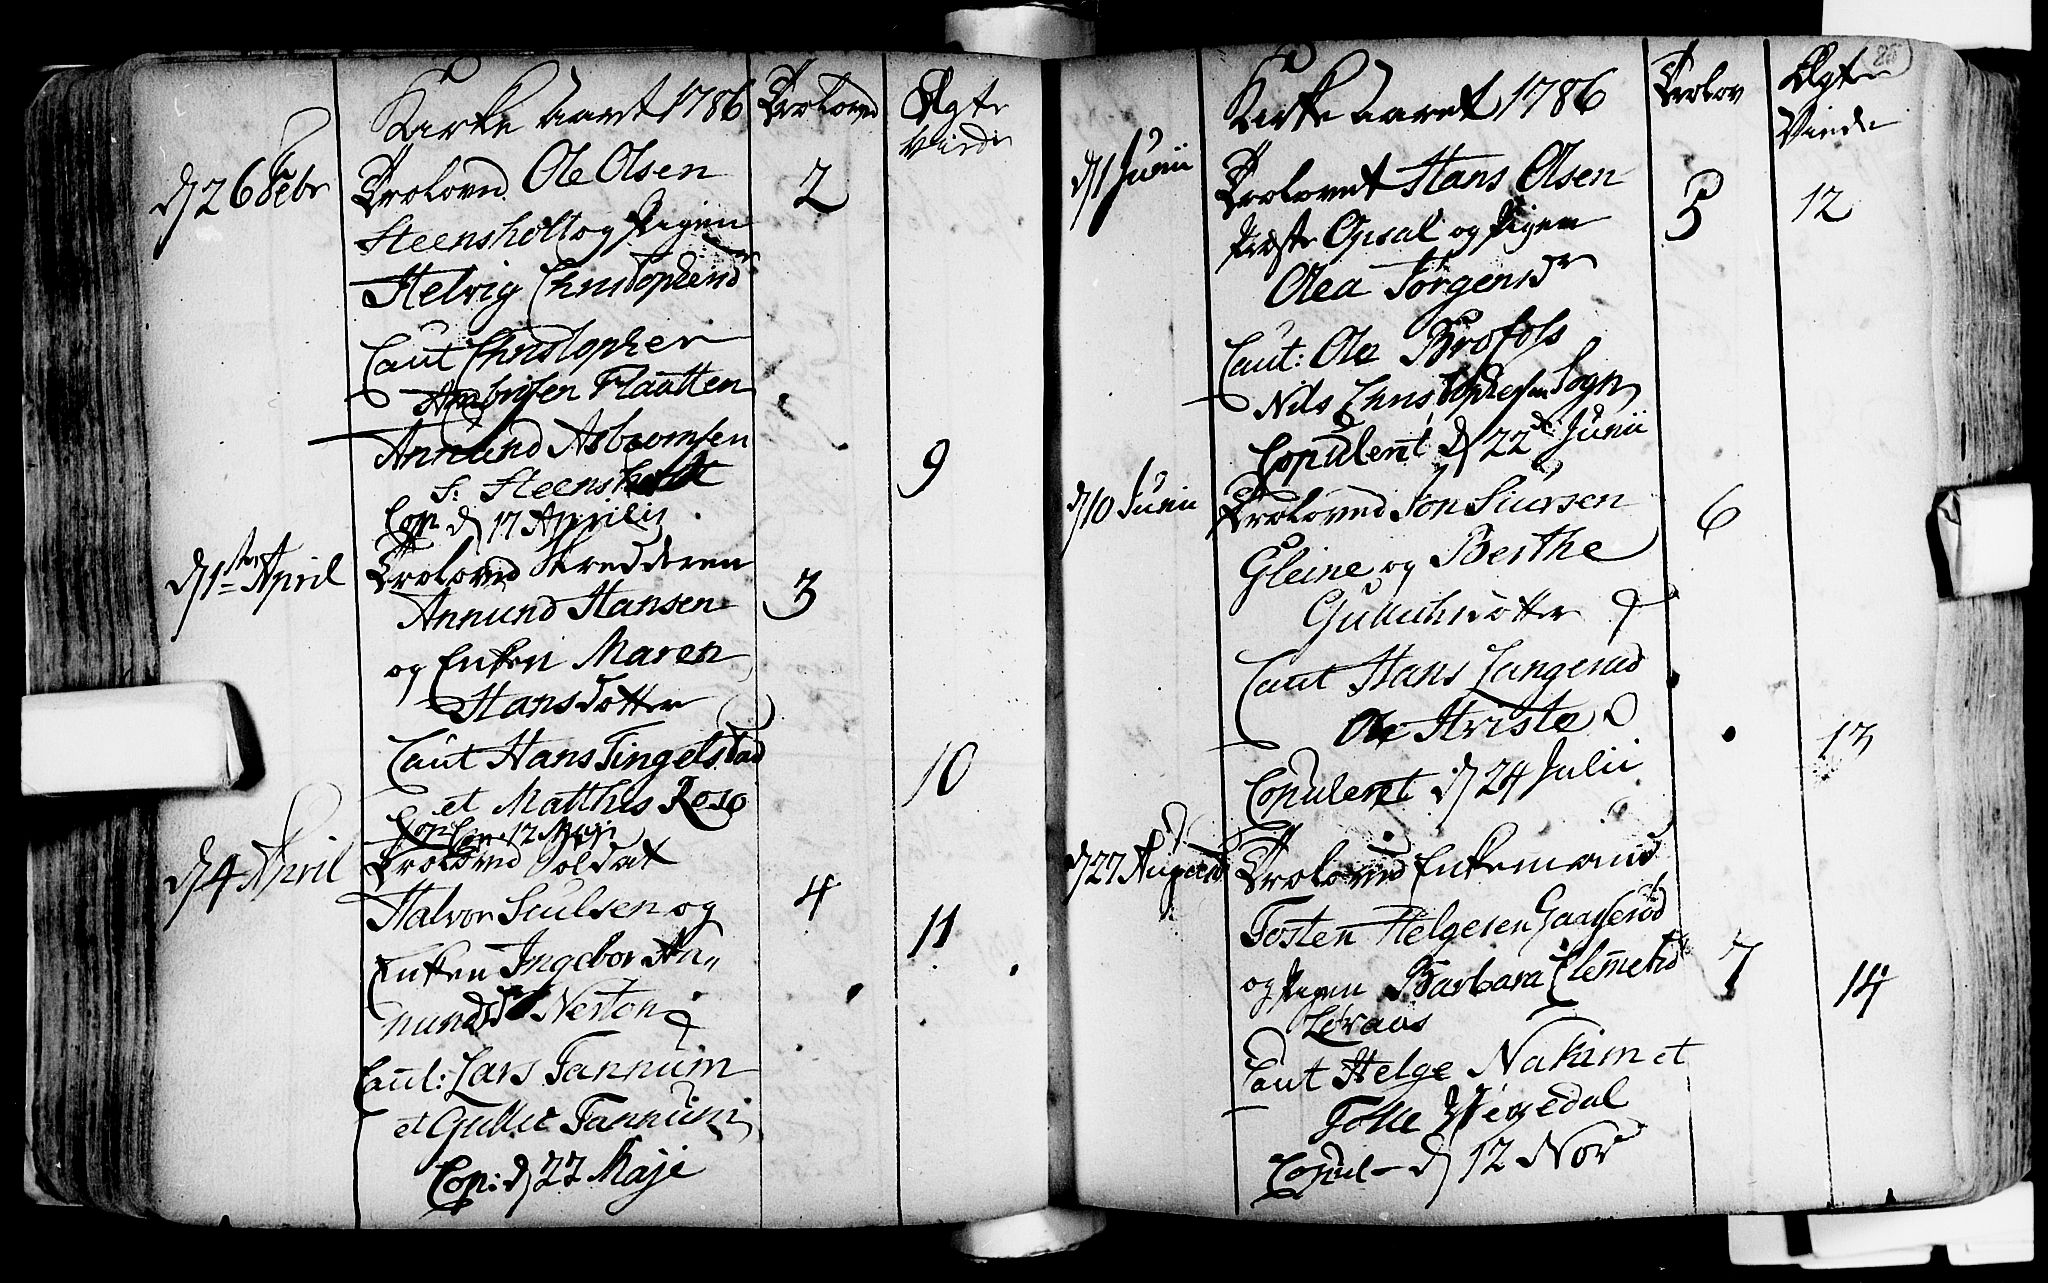 Kirke Aaret 1786 Trolovd Ægte Viede
d 26 Febr Trolovd Ole Olsen 2
Steensholt og Pigen
Helvig Christophersd
Caut Christopher
Ambiørsen Flaatten
Annund Asbiornsen 9
S: Steensholt
Cop d 17 Aprilis
d 1ste April Trolovd Skredderen
Annund Hansen 3
og Enken Maren
Hansdotter
Caut Hans Tingelstad
et Matthis Roso 10
Cop 12 Maji
d 4 April Trolovd Soldat
Halvor Siulsen og 4
Enken Ingebor An 11
nundsd Nerton
Caut: Lars Fannum
et Gullic Fannum
Cop: d 22 Maji
25
Kirke aaret 1786 Trolov Ægte Viede
d 1 Junii Trolovet Hans Olsen 5 12
Opsal og Pigen
Olea Jørgensdr
Caut: Ole Brofos
Nils Christophersen Sogn
Copulent d 22 Junii
d 10 Junii Troloved Jon Siursen 6
Gleine og Berthe
Gullichsdotter
Caut Hans Langerud
Ole Striste
Copulent d 24 Julii 13
d 27 August Trolovd Enkemand
Tosten Helgesen Gaaserød
og Pigen Barbara Clemetsd 7 14
Løraas
Caut Helge Nakim et
Tolle Wegedal
Copul - d 12 Nov